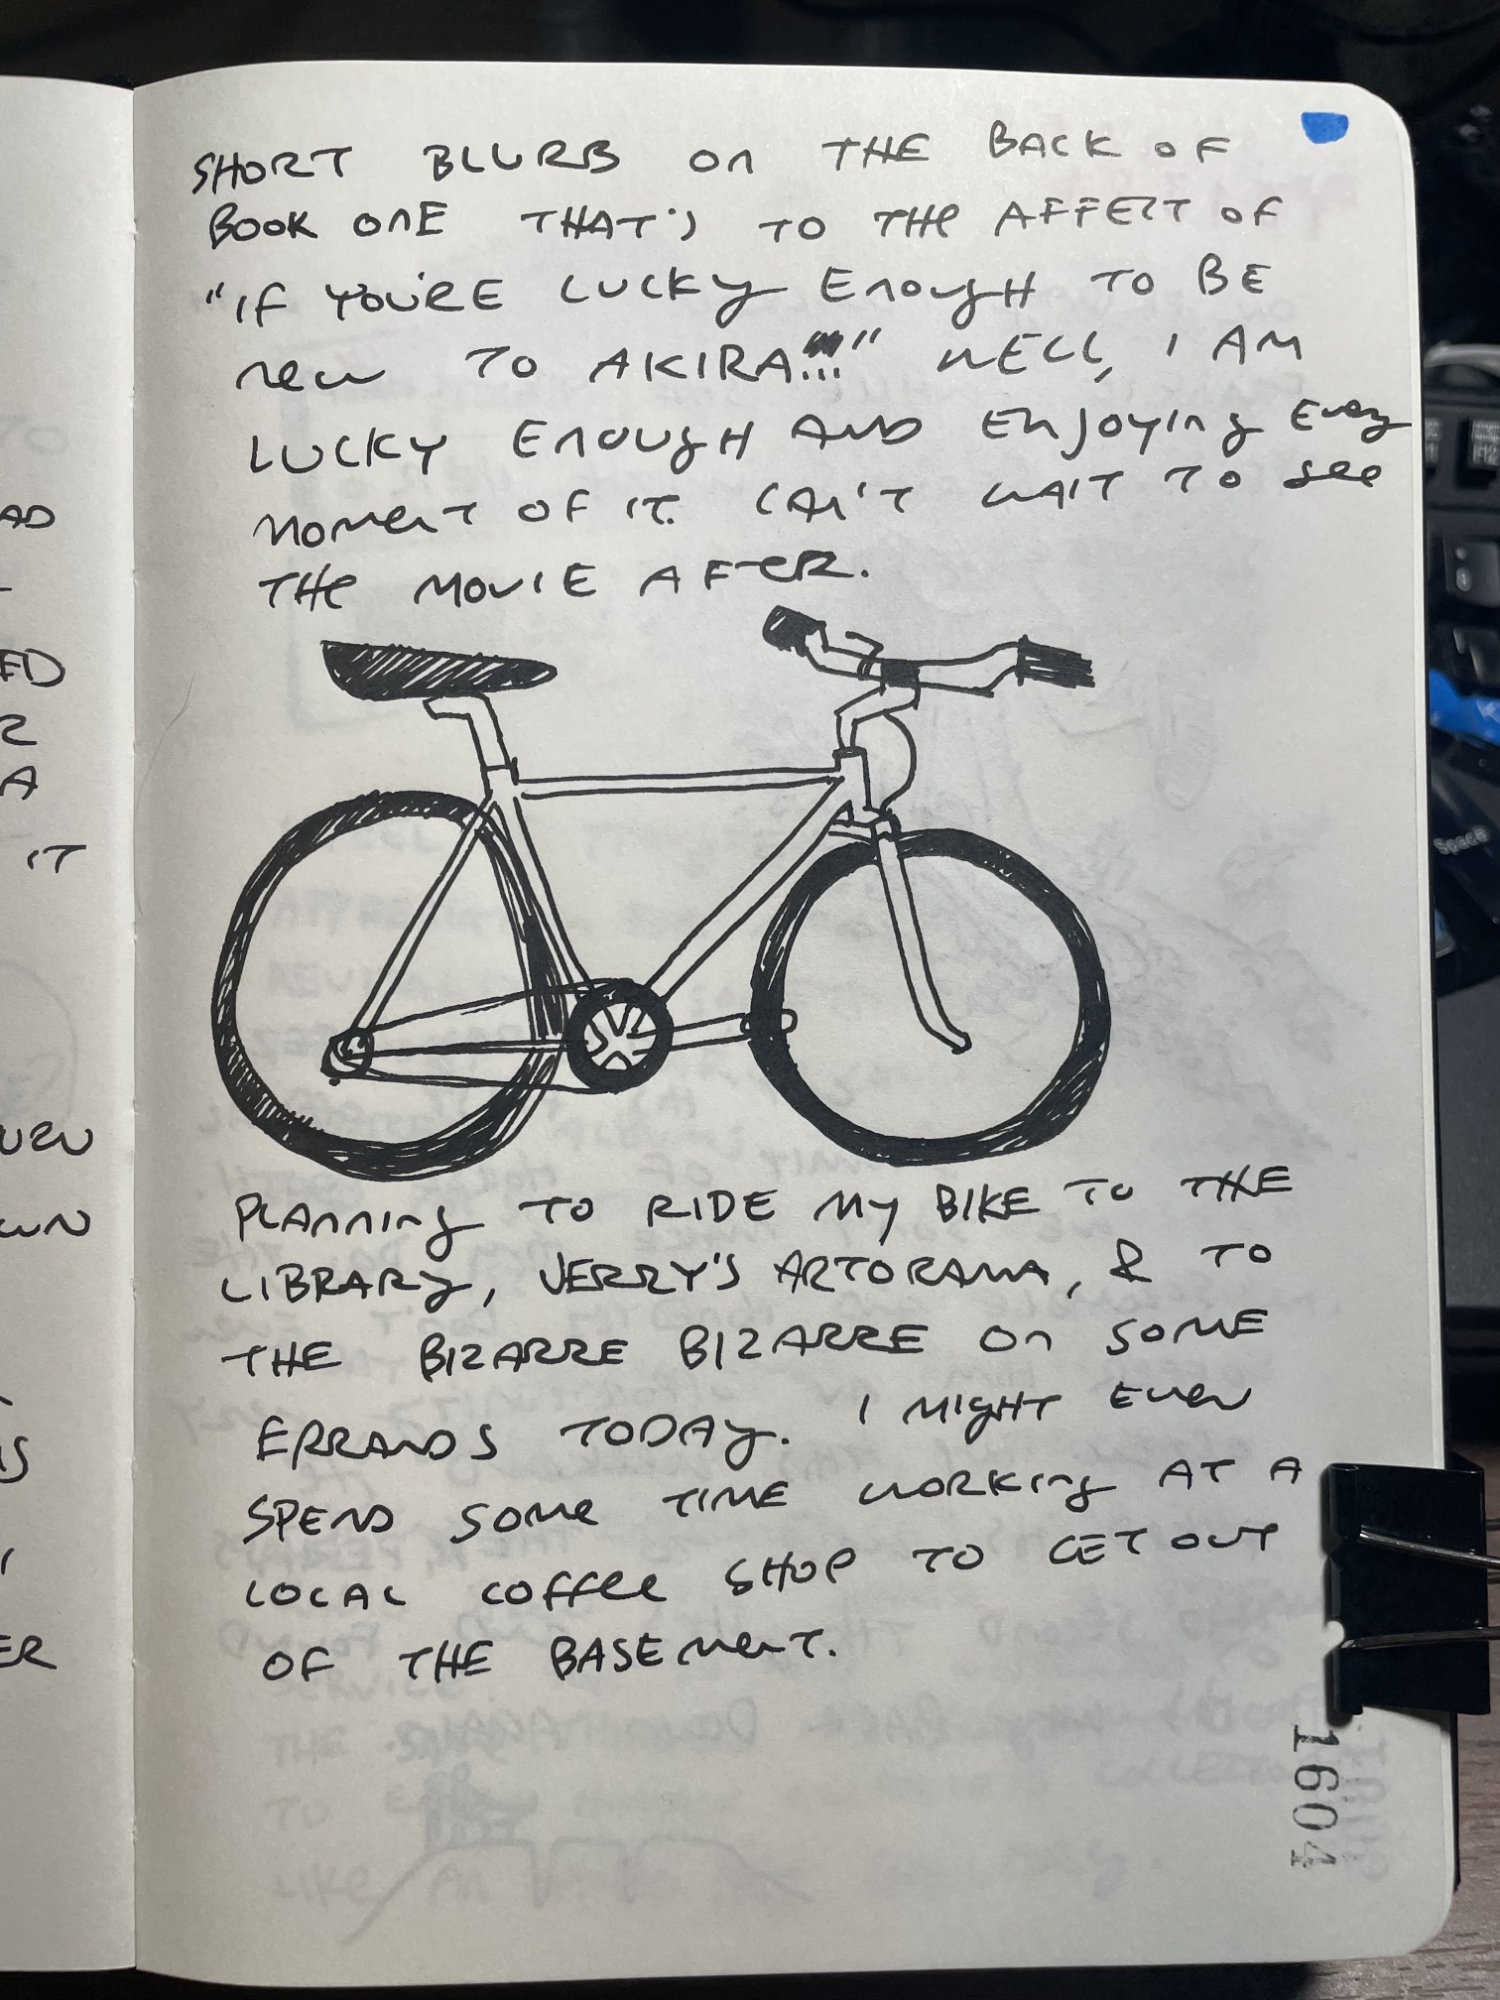 SHORT BLURB ON THE BACK OF
BOOK ONE THAT'S TO THE AFFECT OF
"IF YOU'RE LUCKY ENOUGH TO BE
NEW TO AKIRA!!!" WELL, I AM
LUCKY ENOUGH AND ENJOYING EVERY
MOMENT OF IT. CAN'T WAIT TO SEE
THE MOVIE AFTER.
PLANNING TO RIDE MY BIKE TO THE
LIBRARY, JERRY'S ARTORAMA, & TO
THE BIZARRE BIZARRE ON SOME
ERRANDS TODAY. I MIGHT EVEN
SPEND SOME TIME WORKING AT A
LOCAL COFFEE SHOP TO GET OUT
OF THE BASEMENT.
1604
AD
ED
R
A
IT
OWN
IS
ER
F12
Space